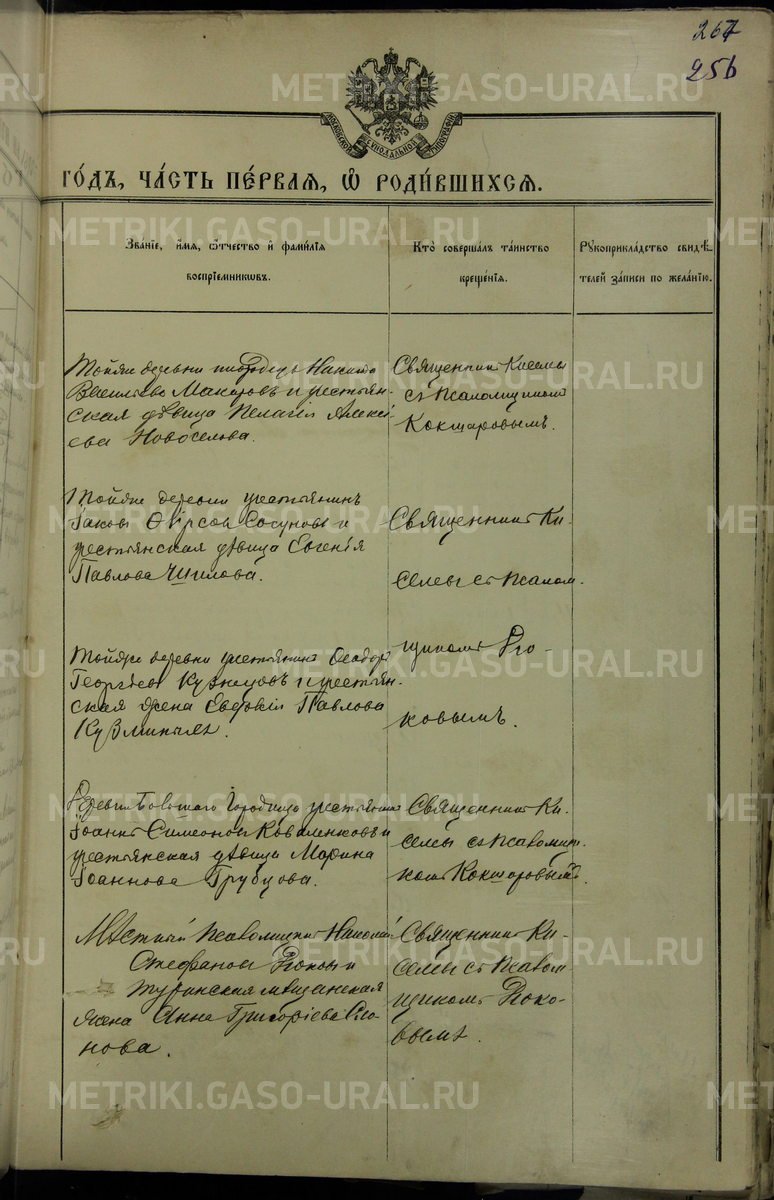 267
256
МОСКОВСКОЙ СѴНОДАЛЬНОЙ ТИПОГРАФІИ
ГО́ДЪ, ЧА́СТЬ ПЕ́РВАЯ, Ѡ РОДИ́ВШИХСЯ.
Зва́ніе, и҆́мя, ѻ҆́тчество и҆ фами́лія
воспріемникѡвъ.
Кто̀ соверша́лъ та́инство
креще́нія.
Рꙋкоприкла́дство свидѣ́-
телей за́писи по жела́нію.
Тойже деревни Никита
Васильевъ Макаровъ и крестьян-
ская дѣвица Пелагія Алексі-
ева Новоселова.
Священникъ Киселевъ
съ псаломщикомъ
Кокшаровымъ.
Тойже деревни крестьянинъ
Іаковъ Ѳирсовъ Сосуновъ и
крестьянская дѣвица Евгенія
Павлова Шилова.
Священникъ Ки-
селевъ съ псалом-
щикомъ
ковымъ.
Тойже деревни крестьянинъ Ѳеодоръ
Георгіевъ Кузнецовъ и крестьян-
ская жена Евфокія Павлова
Деревни Большаго Городища крестьянинъ
Іоаннъ Симеоновъ Коваленковъ и
крестьянская дѣвица Марина
Іоаннова Трубцова.
Священникъ Ки-
селевъ съ псаломщи-
комъ Кокшаровымъ.
Мѣстный псаломщикъ Николай
Стефановъ и
туринская мѣщанская
жена Анна Григоріева Сло-
нова.
Священникъ Ки-
селевъ съ псалом-
щикомъ
METRIKI.GASO-URAL.RU